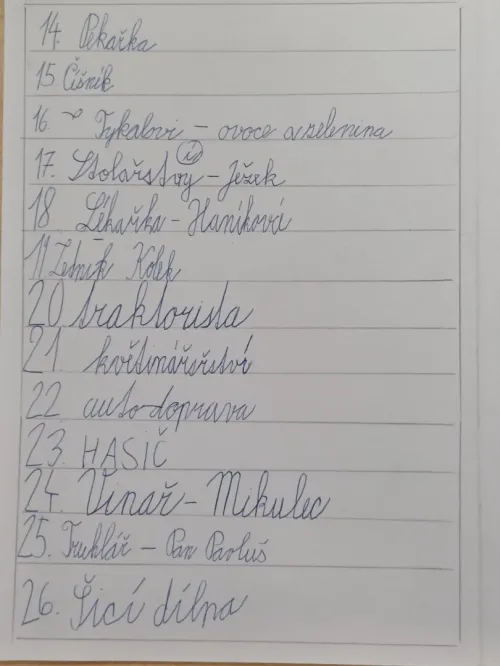 14. Pekařka
15 Číšník
16. Tykalovi - ovoce a zelenina
17. Stolařstvy (í) - Ježek
18 Lékařka - Haníková
11 Lesník Kolek
20 traktorista
21. květinářerství
22 auto-doprava
23. HASIČ
24. Vinař - Mikulec
25. Truhlář - Pan Pavluš
26. Šicí dílna